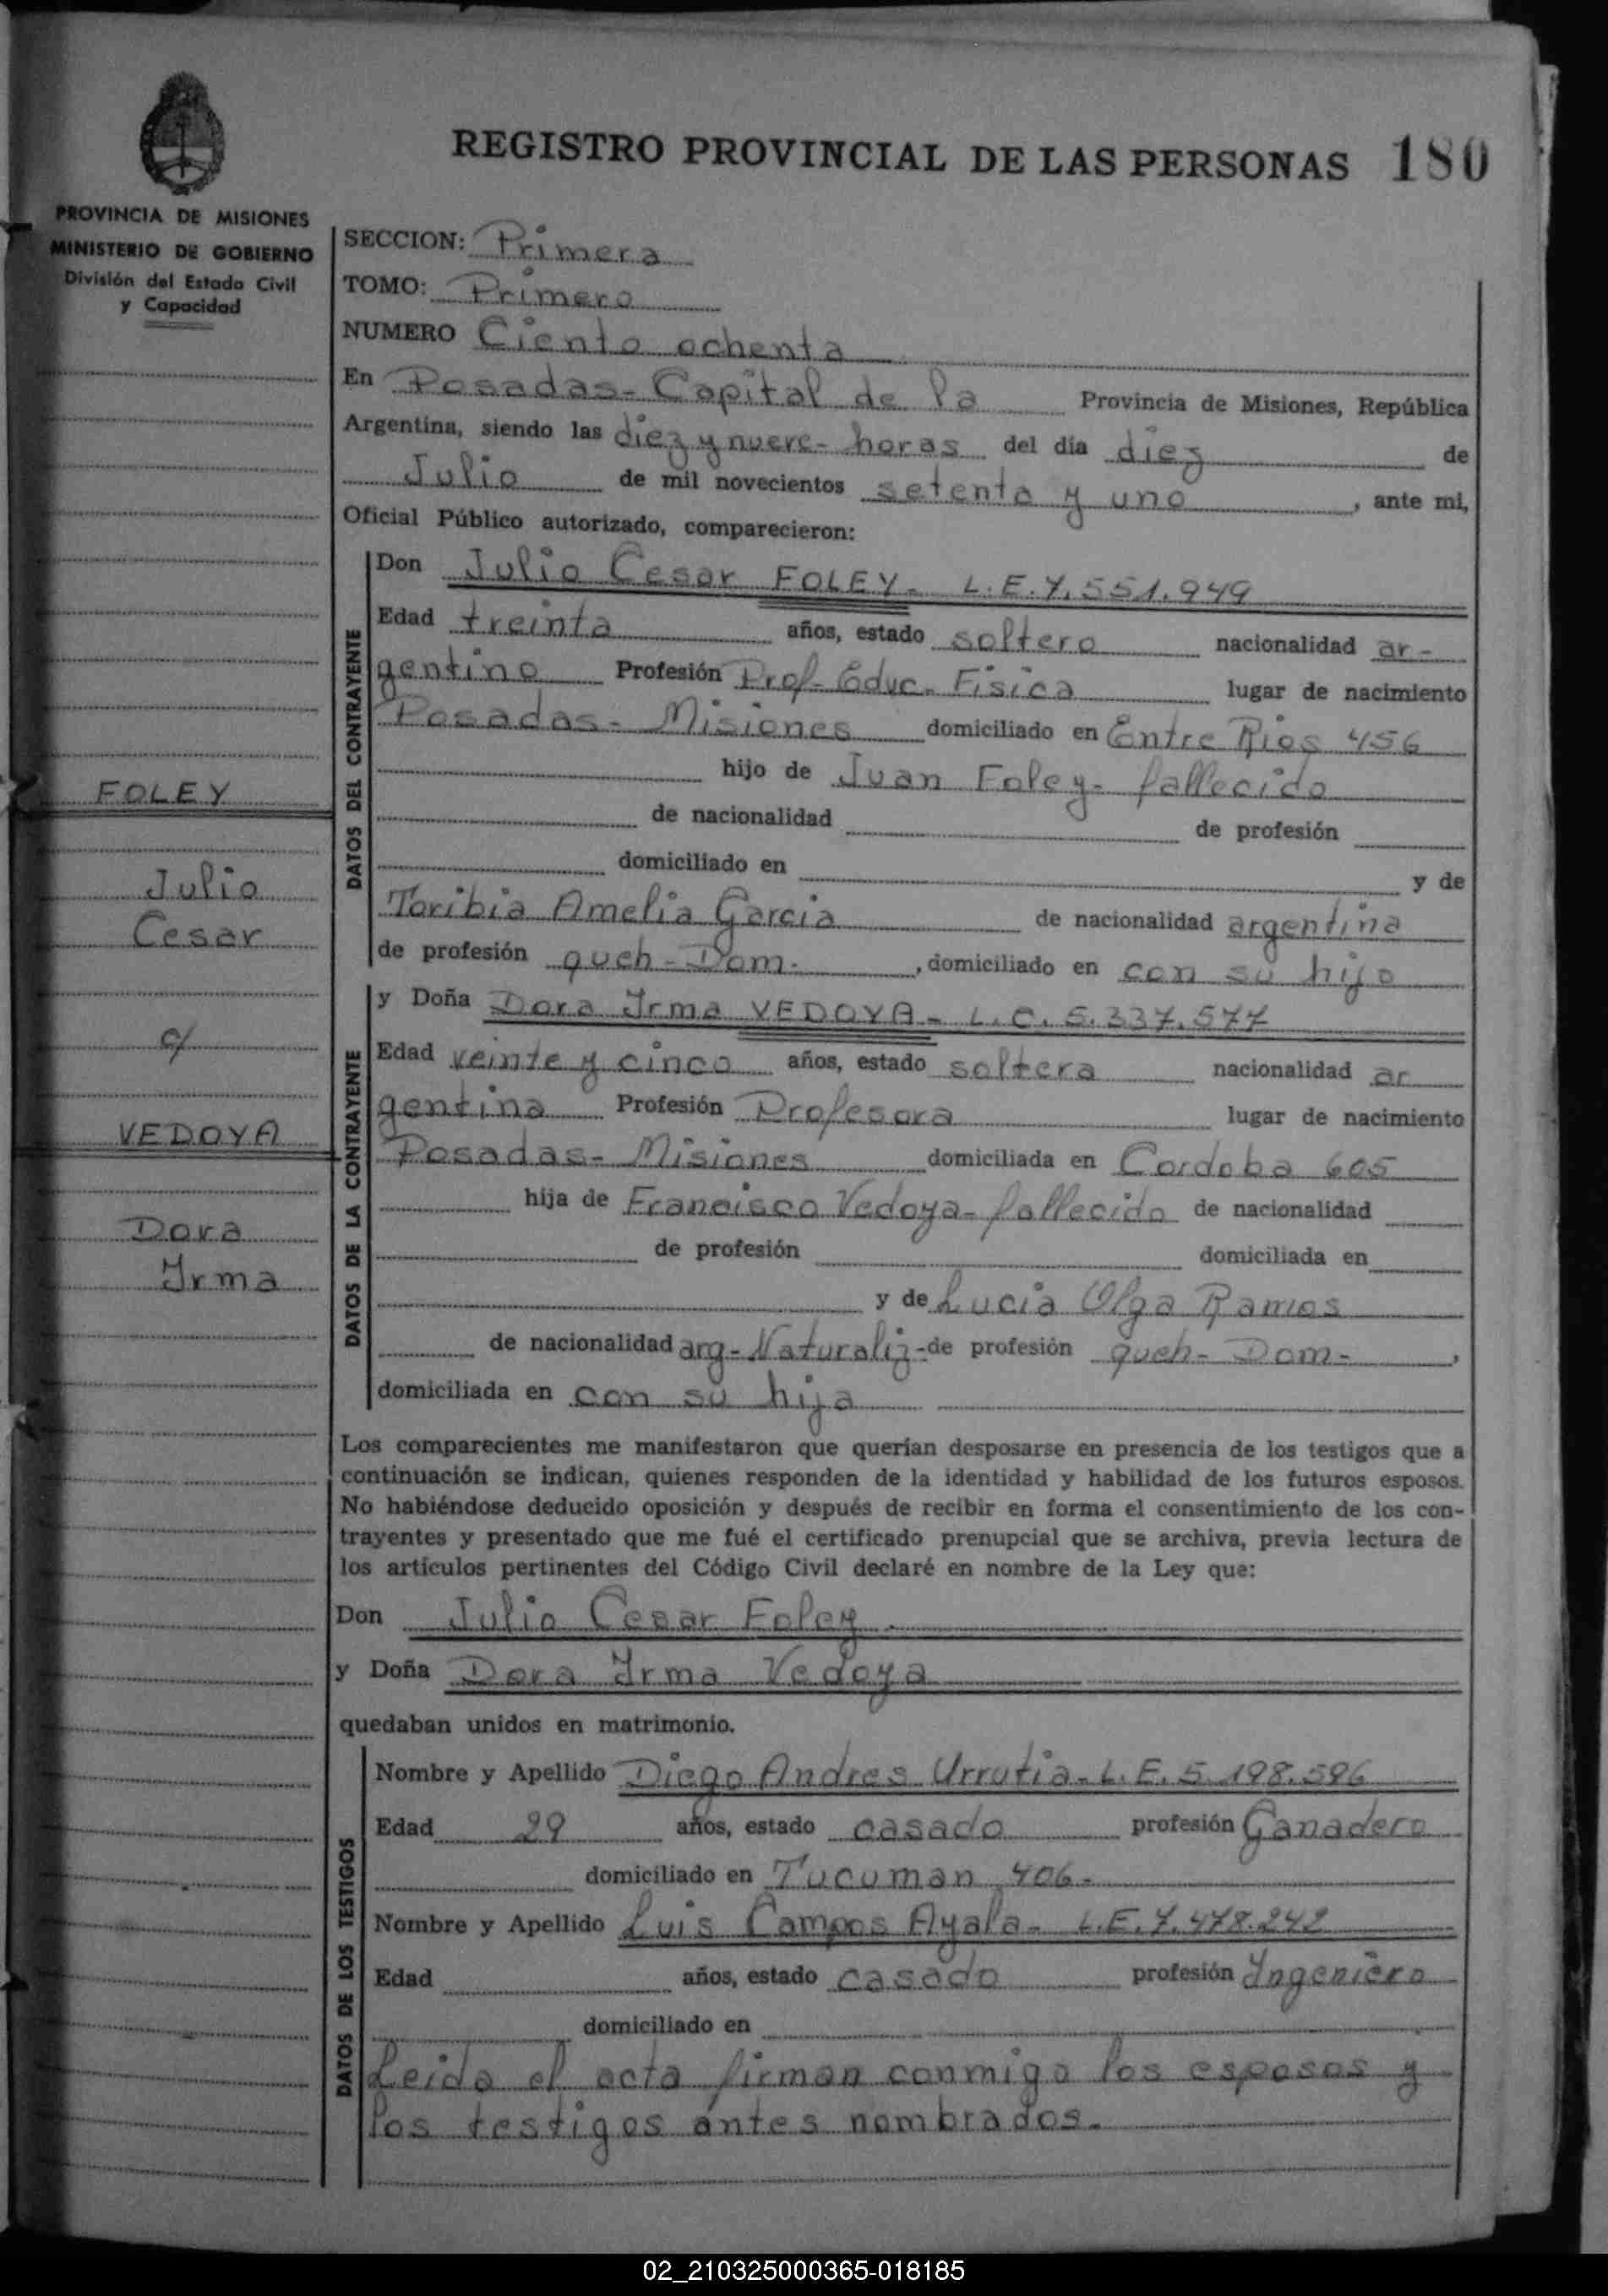 REGISTRO PROVINCIAL DE LAS PERSONAS 180
PROVINCIA DE MISIONES
MINISTERIO DE GOBIERNO
División del Estado Civil
y Capacidad
SECCION: Primera
TOMO: Primero
NUMERO Ciento ochenta
En Posadas - Capital de la Provincia de Misiones, República
Argentina, siendo las diez y nueve - horas del día diez de
Julio de mil novecientos setenta y uno, ante mi,
Oficial Público autorizado, comparecieron:
DATOS DEL CONTRAYENTE
Don Julio Cesar FOLEY - L.E. 7.551.949
Edad treinta años, estado soltero nacionalidad ar-
gentino Profesión Prof- Educ- Fisica lugar de nacimiento
Posadas - Misiones domiciliado en Entre Rios 456
hijo de Juan Foley - fallecido
de nacionalidad de profesión
domiciliado en y de
Toribia Amelia Garcia de nacionalidad argentina
de profesión queh - Dom -, domiciliado en con su hijo
DATOS DE LA CONTRAYENTE
y Doña Dora Irma VEDOYA - L.C. 5.337.577
Edad veinte y cinco años, estado soltera nacionalidad ar
gentina Profesión Profesora lugar de nacimiento
Posadas - Misiones domiciliada en Cordoba 605
hija de Francisco Vedoya - fallecido de nacionalidad
de profesión domiciliada en
y de Lucia Olga Ramos
de nacionalidad arg - Naturaliz - de profesión queh - Dom -,
domiciliada en con su hija
FOLEY
Julio
Cesar
c/
VEDOYA
Dora
Irma
Los comparecientes me manifestaron que querían desposarse en presencia de los testigos que a
continuación se indican, quienes responden de la identidad y habilidad de los futuros esposos.
No habiéndose deducido oposición y después de recibir en forma el consentimiento de los con-
trayentes y presentado que me fué el certificado prenupcial que se archiva, previa lectura de
los artículos pertinentes del Código Civil declaré en nombre de la Ley que:
Don Julio Cesar Foley
y Doña Dora Irma Vedoya
quedaban unidos en matrimonio.
DATOS DE LOS TESTIGOS
Nombre y Apellido Diego Andres Urrutia - L.E. 5.198.596
Edad 29 años, estado casado profesión Ganadero
domiciliado en Tucuman 406 -
Nombre y Apellido Luis Campos Ayala - L.E. 7.478.242
Edad años, estado casado profesión Ingeniero
domiciliado en
Leida el acta firman conmigo los esposos y
los testigos antes nombrados.
02_210325000365-018185